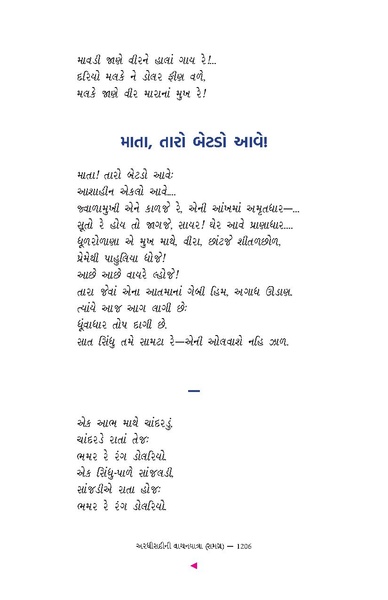 માવડી જાણે વીરને હાલાં ગાય રે!...
દરિયો મલકે ને ડોલર ફીણ વળે,
મલકે જાણે વીર મારાનાં મુખ રે!
માતા, તારો બેટડો આવે!
માતા! તારો બેટડો આવેઃ
આશાહીન એકલો આવે....
જ્વાળામુખી એને કાળજે રે, એની આંખમાં અમૃતધાર—...
સૂતો રે હોય તો જાગજે, સાયર! ઘેર આવે પ્રાણાધાર....
ધૂળરોળાણા એ મુખ માથે, વીરા, છાંટજે શીતળછોળ,
પ્રેમેથી પાહુલિયા ધોજે!
આછે આછે વાયરે લ્હોજે!
તારા જેવાં એના આતમાનાં ગેબી હિમ, અગાધ ઊંડાણ.
ત્યાંયે આજ આગ લાગી છેઃ
ધૂંવાધાર તોપ દાગી છે.
સાત સિંધુ તમે સામટા રે—એની ઓલવાશે નહિ ઝાળ.
—
એક આભ માથે ચાંદરડું,
ચાંદરડે રાતાં તેજઃ
ભમ્મર રે રંગ ડોલરિયો.
એક સિંધુ-પાળે સાંજલડી,
સાંજડીએ રાતા હોજઃ
ભમ્મર રે રંગ ડોલરિયો.
અરધીસદીની વાચનયાત્રા (સમગ્ર) — 1206
◀